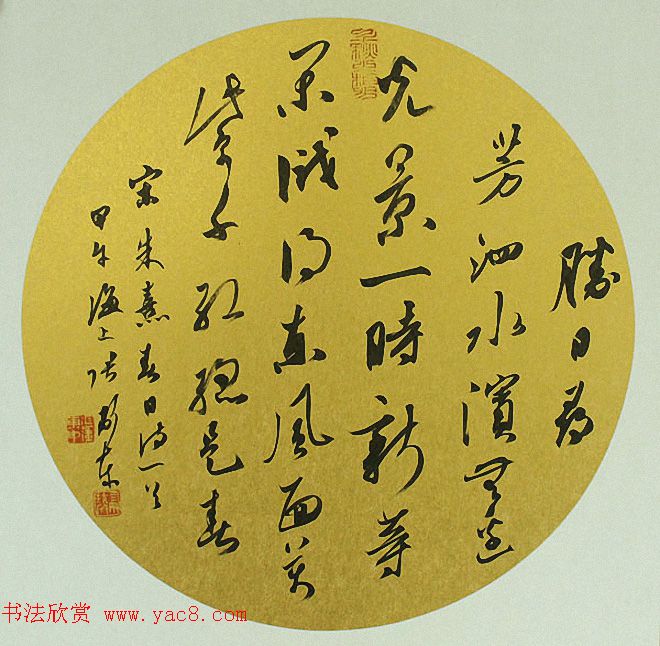 勝日尋
芳泗水濱無邊
光景一時新等
閑識得東風面萬
紫千紅總是春
宋朱熹春日詩一首
甲午海上張
书法欣赏 www.yac8.com